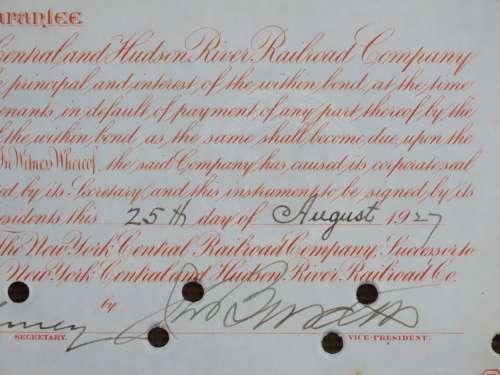 arantee
Central and Hudson River Railroad Company
principal and interest of the within bond, at the time
enants in default of payment of any part thereof by the
f the within bond, as the same shall become due, upon the
In Witness Whereof, the said Company has caused its corporate seal
ed by its Secretary, and this instrument to be signed by its
esidents this 25th day of August 1927
The New York Central Railroad Company, Successor to
New York Central and Hudson River Railroad Co.
by
SECRETARY. VICE-PRESIDENT.